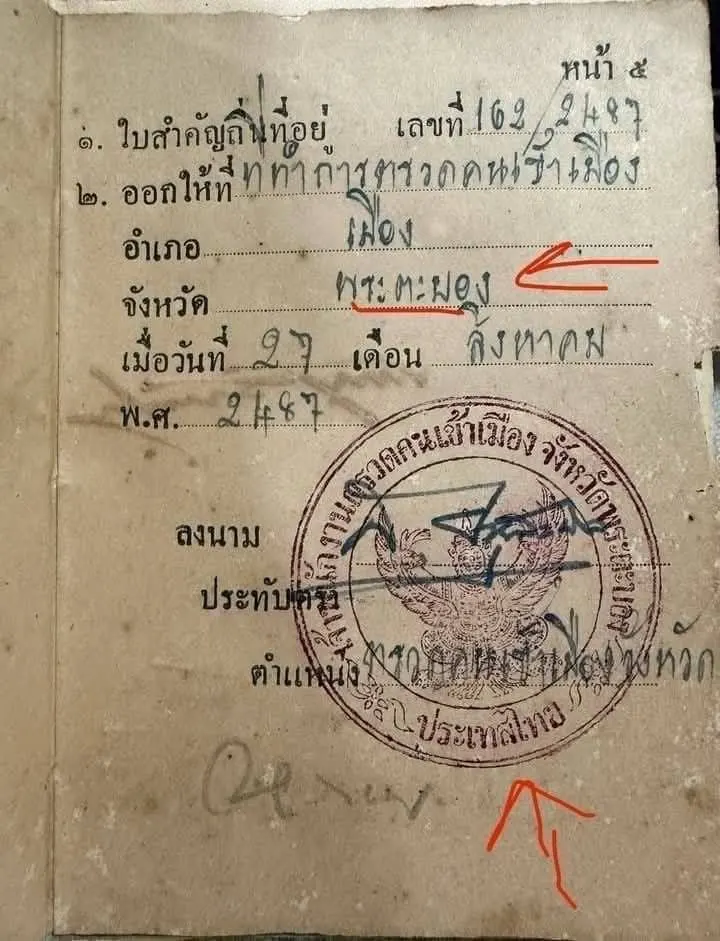 หน้า ๕
๑. ใบสำคัญถิ่นที่อยู่ เลขที่ 162/2487
๒. ออกให้ที่ ที่ทำการตรวดคนเข้าเมือง
อำเภอ เมือง
จังหวัด พระตะบอง
เมื่อวันที่ 27 เดือน สิงหาคม
พ.ศ. 2487
ลงนาม
ประทับตรา
ตำแหน่ง ตรวดคนเข้าเมืองจังหวัด
พนักงานตรวดคนเข้าเมือง จังหวัดพระตะบอง
ประเทศไทย